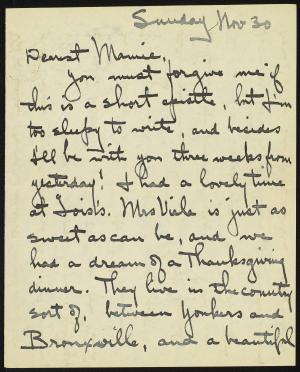 Sunday Nov 30
Dearest Mamie,
You must forgive me if
this is a short epistle, but I'm
too sleepy to write, and besides
I'll be with you three weeks from
yesterday! I had a lovely time
at Lois's. Mrs Viele is just as
sweet as can be, and we
had a dream of a Thanksgiving
dinner. They live in the country
sort of, between Yonkers and
Bronxville, and a beautiful